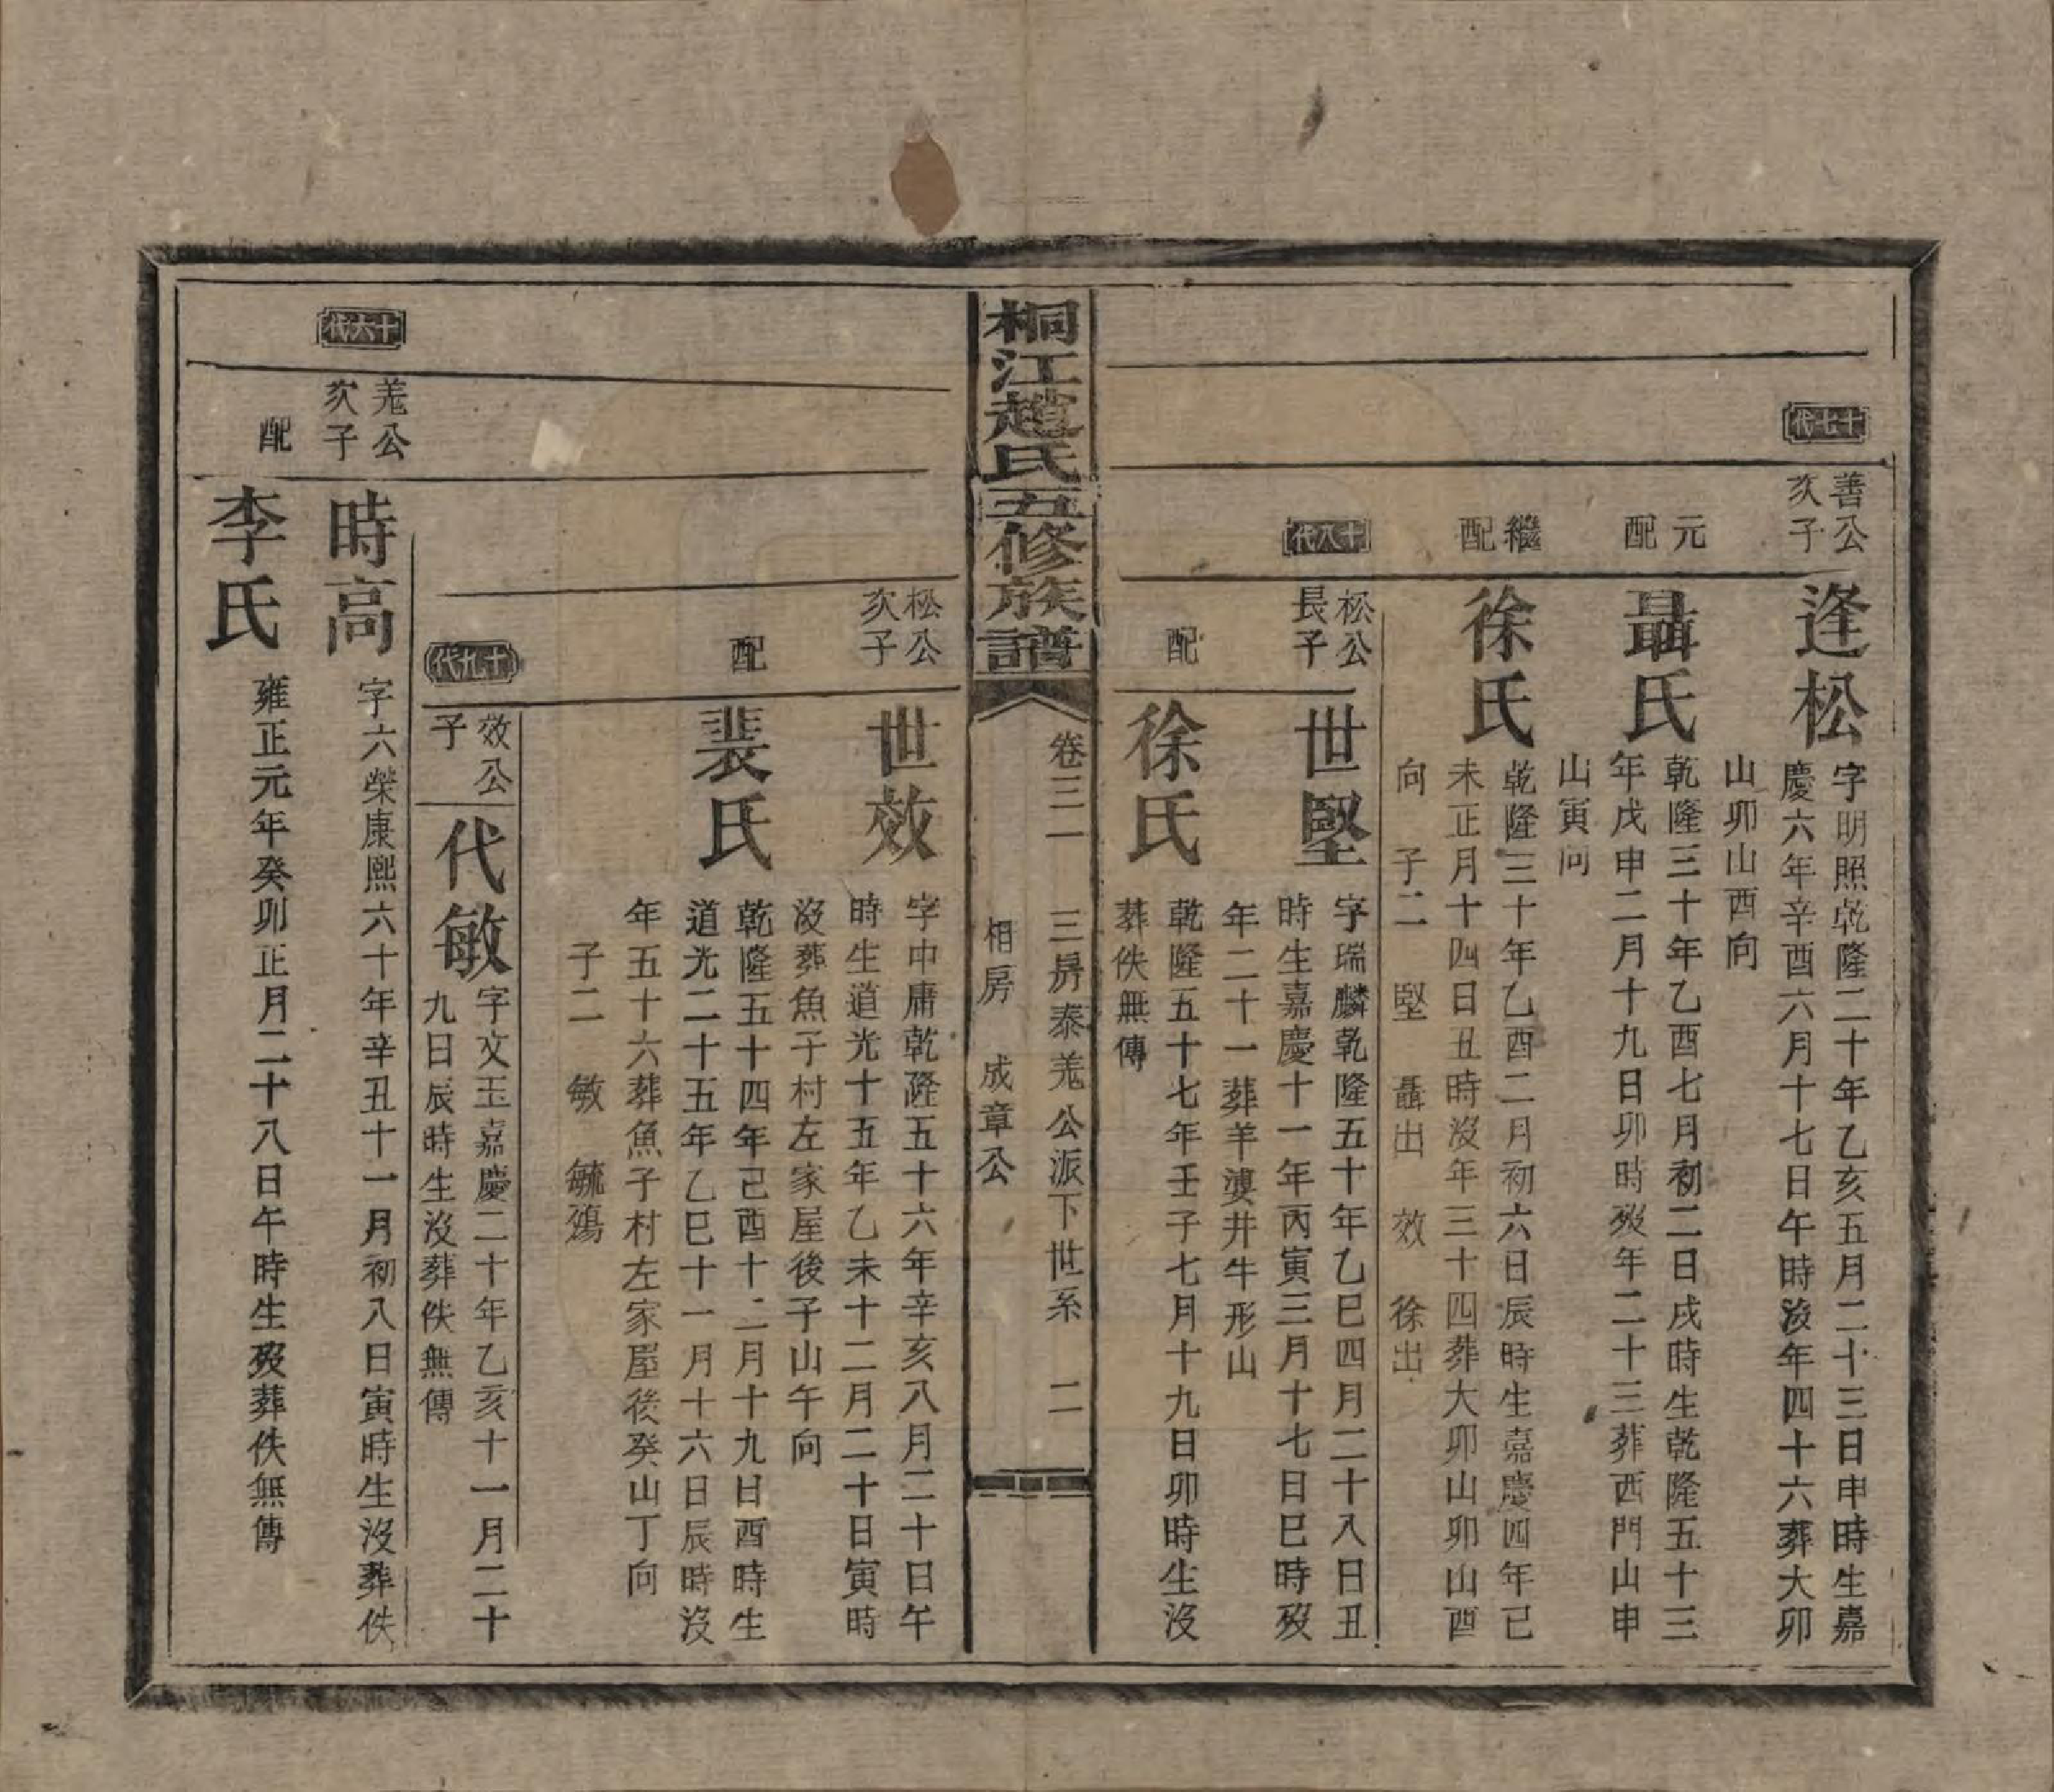 十七代
善公
次子
逢松
字明照乾隆二十年乙亥五月二十三日申時生嘉
慶六年辛酉六月十七日午時沒年四十六葬大卯
山卯山酉向
元
配
聶氏
乾隆三十年乙酉七月初二日戌時生乾隆五十三
年戊申二月十九日卯時歿年二十三葬西門山申
山寅向
繼
配
徐氏
乾隆三十年乙酉二月初六日辰時生嘉慶四年己
未正月十四日丑時沒年三十四葬大卯山卯山酉
向 子二 堅 聶出 效 徐出
十八代
松公
長子
世堅
字瑞麟乾隆五十年乙巳四月二十八日丑
時生嘉慶十一年丙寅三月十七日巳時歿
年二十一葬羊婆井牛形山
配
徐氏
乾隆五十七年壬子七月十九日卯時生沒
葬佚無傳
桐江趙氏五修族譜
卷三一 三房泰羗公派下世系 二
相房 成章公
松公
次子
世效
字中庸乾隆五十六年辛亥八月二十日午
時生道光十五年乙未十二月二十日寅時
沒葬魚子村左家屋後子山午向
配
裴氏
乾隆五十四年己酉十二月十九日酉時生
道光二十五年乙巳十一月十六日辰時沒
年五十六葬魚子村左家屋後癸山丁向
子二 敏 毓殤
十九代
效公
子
代敏
字文玉嘉慶二十年乙亥十一月二十
九日辰時生沒葬佚無傳
十六代
羗公
次子
時高
字六榮康熙六十年辛丑十一月初八日寅時生沒葬佚
配
李氏
雍正元年癸卯正月二十八日午時生歿葬佚無傳